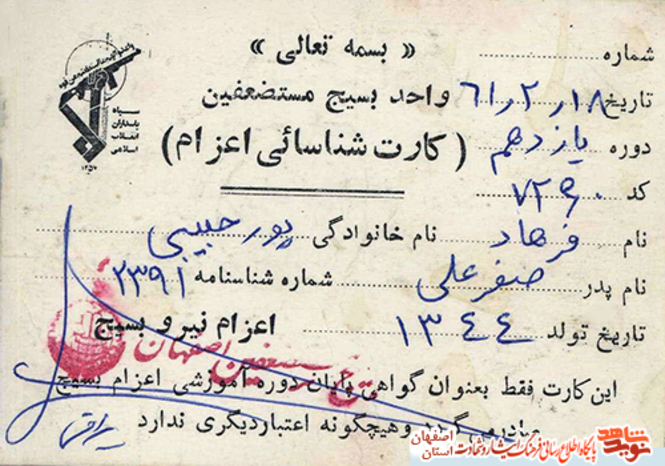 « بسمه تعالی »
شماره
تاریخ ۶۱/۲/۱۸ واحد بسیج مستضعفین
سپاه
پاسداران
انقلاب
اسلامی
۱۳۵۷
دوره یازدهم (کارت شناسائی اعزام)
کد
نام فرهاد نام خانوادگی پور حبیبی
نام پدر صفرعلی شماره شناسنامه ۲۳۹۱
تاریخ تولد ۱۳۴۴ اعزام نیرو بسیج
اصفهان
این کارت فقط بعنوان گواهی پایان دوره آموزشی اعزام بسیج
صادر میگردد و هیچگونه اعتبار دیگری ندارد
نوید شاهد
پایگاه اطلاع رسانی فرهنگ ایثار و شهادت
استان اصفهان